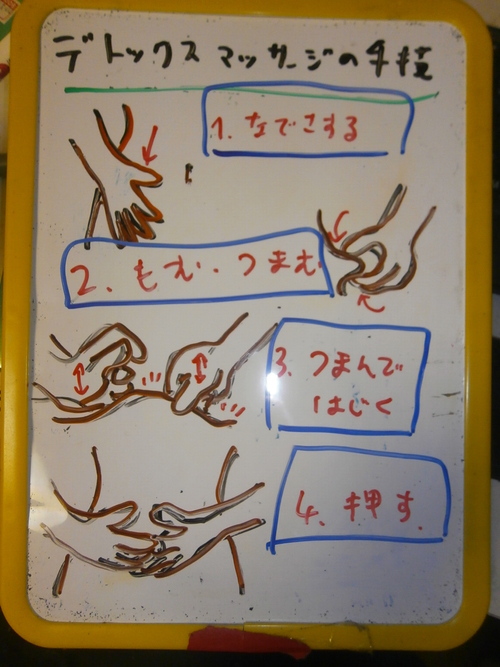 デトックスマッサージの手技
1. なでさする
2. もむ・つまむ
3. つまんで
はじく
4. 押す.